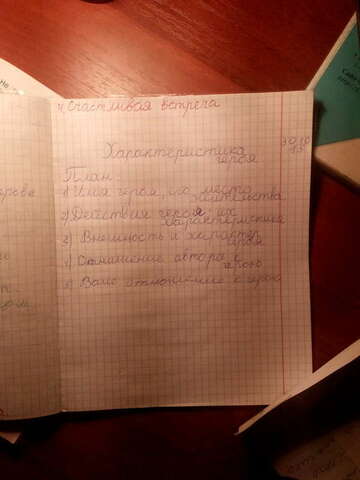 4) Счастливая встреча
Характеристика
героя
План:
1) Имя героя, его место
жительства
2) Действия героя, их
характеристика
3) Внешность и характер
героя
4) Отношение автора к
герою
5) Ваше отношение к герою